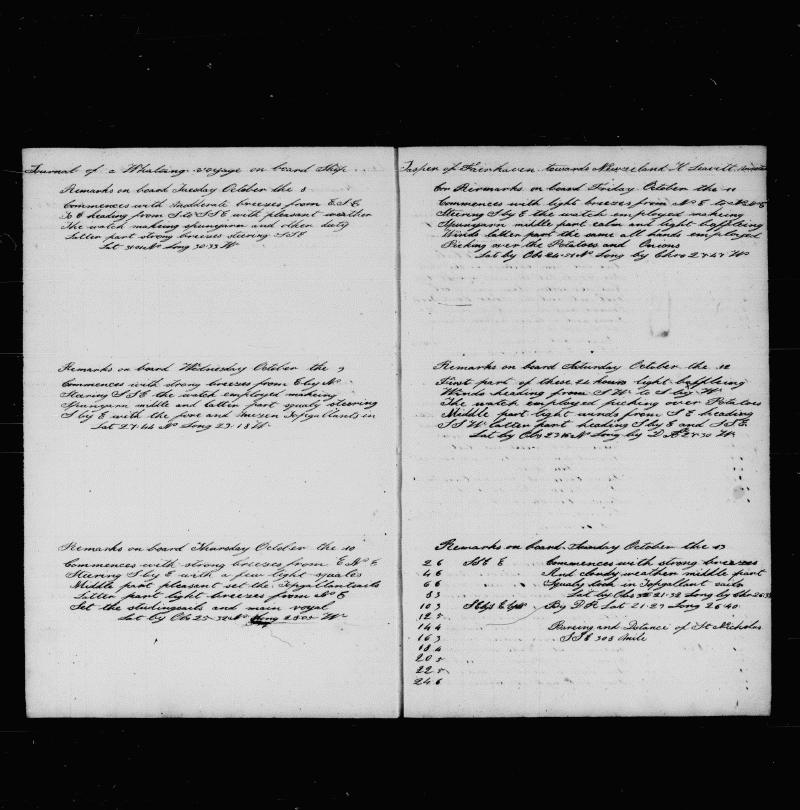 Journal of a Whaleing voyage on board Ship
Remarks on board Tuesday October the 8
Commences with Madderate breezes from E S E
To E heading from S to S S E with pleasant weather
The watch makeing spunyarn and other duty
Latter part strong breezes steering S S E
Lat 31 01 N Long 30 33 W
Remarks on board Wednesday October the 9
Commences with strong breezes from E by N
Stearing S S E the watch employed makeing
Spunyarn middle and latter part squaly steering
S by E with the fore and mizen Topgallants in
Lat 27 44 N Long 29 18 W
Remarks on board Thursday October the 10
Commences with strong breezes from E N E
Stearing S by E with a few light squales
Middle part pleasent set the Topgallantsails
Latter part light breezes from N E
Set the studingsails and main royal
Lat by Obs 25 32 N Long 28 05 W
Jasper of Fairhaven towards Newzeland H Leavitt
Remarks on board Friday October the 11
Commences with light breezes from N E to
Steering S by E the watch employed makeing
Spunyarn middle part calm and light baffleing
Winds latter part the same all hands employed
Picking over the Potatoes and Onions
Lat by Obs 24 51 N Long by Chro 27 47 W
Remarks on board Saturday October the 12
First part of these 24 hours light baffleing
Winds heading from S W to S by W
The watch employed picking over Potatoes
Middle part light winds from S E heading
S S W latter part heading S by E and S S E
Lat by Obs 23 16 N Long by D R 27 30 W
Remarks on board Sunday October the 13
2 6 Commences with strong breezes
4 6 And cloudy weather middle part
6 6 Squaly took in Topgallant sails
8 3 Lat by Obs 21 32 Long by Chro 26 33
10 3 By D R Lat 21 27 Long 26 40
12 5
14 4 Bareing and Distance of St Nicholas
16 3 S S E 303 Mile
18 4
20 5
22 5
24 6